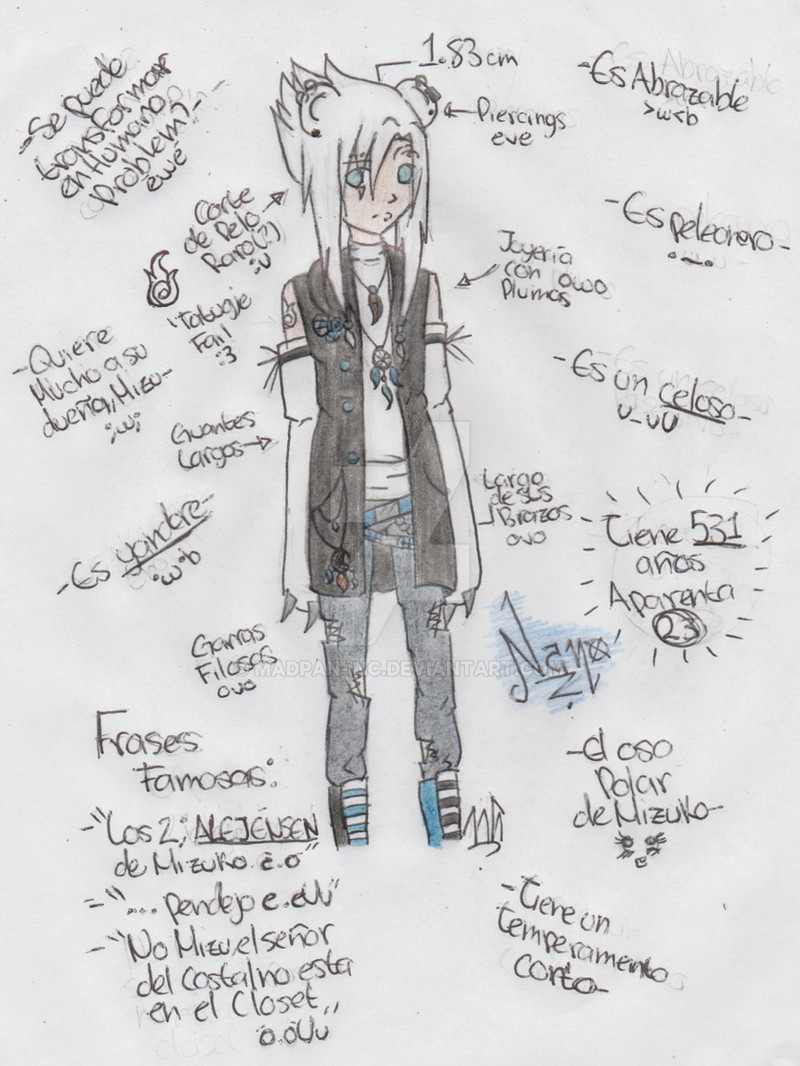 1.83cm
-Se puede
transformar
en Humano,
problem?-
ewe
-Es Abrazable
>w<b
Piercings
eve
Corte
de Pelo
Raro(?)
:v
-Es peleonero-
Joyeria
con owo
Plumas
Tatuaje
Fail
:3
-Quiere
Mucho a su
dueña, Mizu-
;w;
-Es un celoso-
u_uU
Guantes
Largos
Largo
de sus
Brazos
ovo
-Es yandere-
;w;b
Tiene 531
años
Aparenta
23
Garras
Filosas
ovo
Nano
MADPAN-INC.DEVIANTART.COM
Frases
Famosas:
-"Los 2, ALEJENSEN
de Mizuko. e.o"
-"... pendejo e.eUu"
-"No Mizu, el señor
del Costal no esta
en el Closet,,
o.oUu
-El oso
Polar
de Mizuko-
-Tiene un
temperamento
Corto-